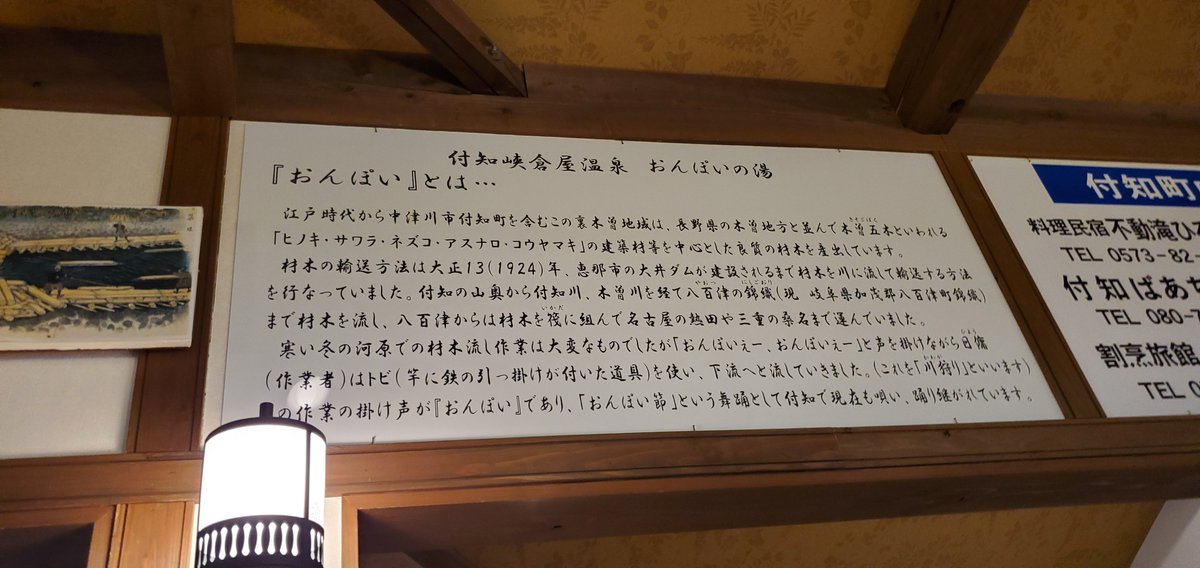 付知峡倉屋温泉 おんぽいの湯
『おんぽい』とは…
江戸時代から中津川市付知町を含むこの裏木曽地域は、長野県の木曽地方と並んで木曽五木といわれる
「ヒノキ・サワラ・ネズコ・アスナロ・コウヤマキ」の建築材等を中心とした良質の材木を産出しています。
材木の輸送方法は大正13(1924)年、恵那市の大井ダムが建設されるまで材木を川に流して輸送する方法
を行なっていました。付知の山奥から付知川、木曽川を経て八百津の錦織(現 岐阜県加茂郡八百津町錦織)
まで材木を流し、八百津からは材木を筏に組んで名古屋の熱田や三重の桑名まで運んでいました。
寒い冬の河原での材木流し作業は大変なものでしたが「おんぽいえー、おんぽいえー」と声を掛けながら日傭
(作業者)はトビ(竿に鉄の引っ掛けが付いた道具)を使い、下流へと流していきました。(これを「川狩り」といいます)
の作業の掛け声が『おんぽい』であり、「おんぽい節」という舞踊として付知で現在も唄い、踊り継がれています。
付知町
料理民宿不動滝ひろ
TEL 0573-82-
付知ばあち
TEL 080-7
割烹旅館
TEL 0